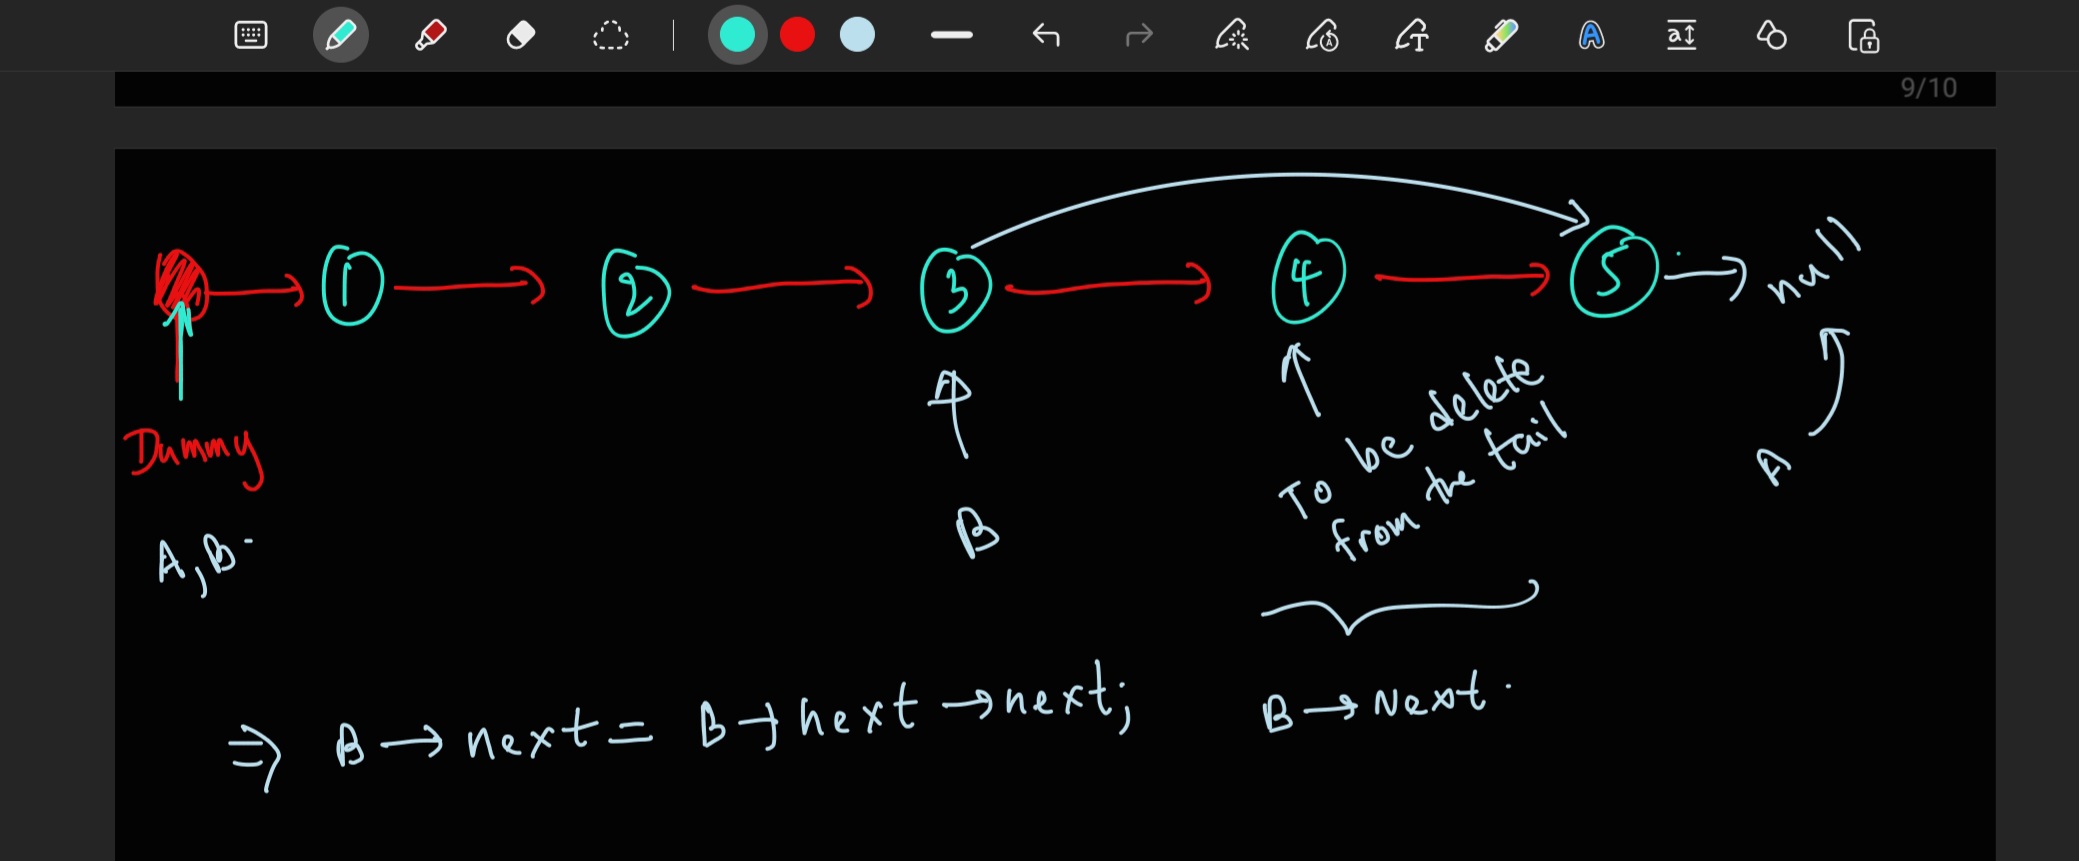 9/10
1 → 2 → 3 → 4 → 5 → null
Dummy
A, B
B
To be delete
from the tail
A
⇒ B → next = B → next → next;
B → Next.